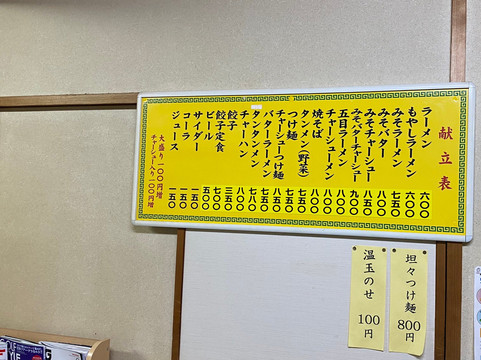 献立表
ラーメン 六〇〇
もやしラーメン 六〇〇
みそラーメン 七五〇
みそバター 八〇〇
みそチャーシュー 八五〇
みそバターチャーシュー 九〇〇
五目ラーメン 八〇〇
チャーシューメン 八〇〇
焼そば 八〇〇
タンメン(野菜) 七五〇
つけ麺 七五〇
チャーシューつけ麺 八五〇
バターラーメン 七五〇
タンタンメン
チャーハン
餃子 三五〇
餃子定食 七〇〇
ビール 五〇〇
サイダー 一五〇
コーラ 一五〇
ジュース 一五〇
大盛り一〇〇円増
チャーシュー入り一〇〇円増
坦々つけ麺 800円
温玉のせ 100円